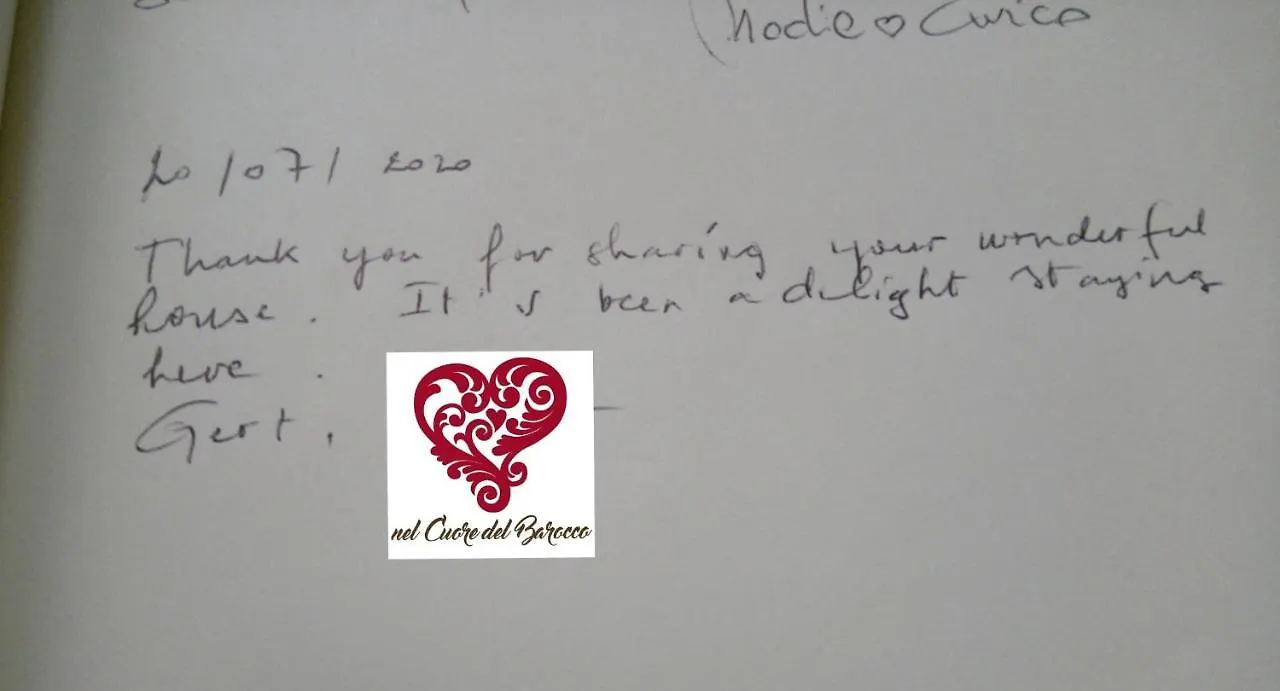 20/07/2020
Thank you for sharing your wonderful
house. It's been a delight staying
here.
Gert,
nel Cuore del Barocco